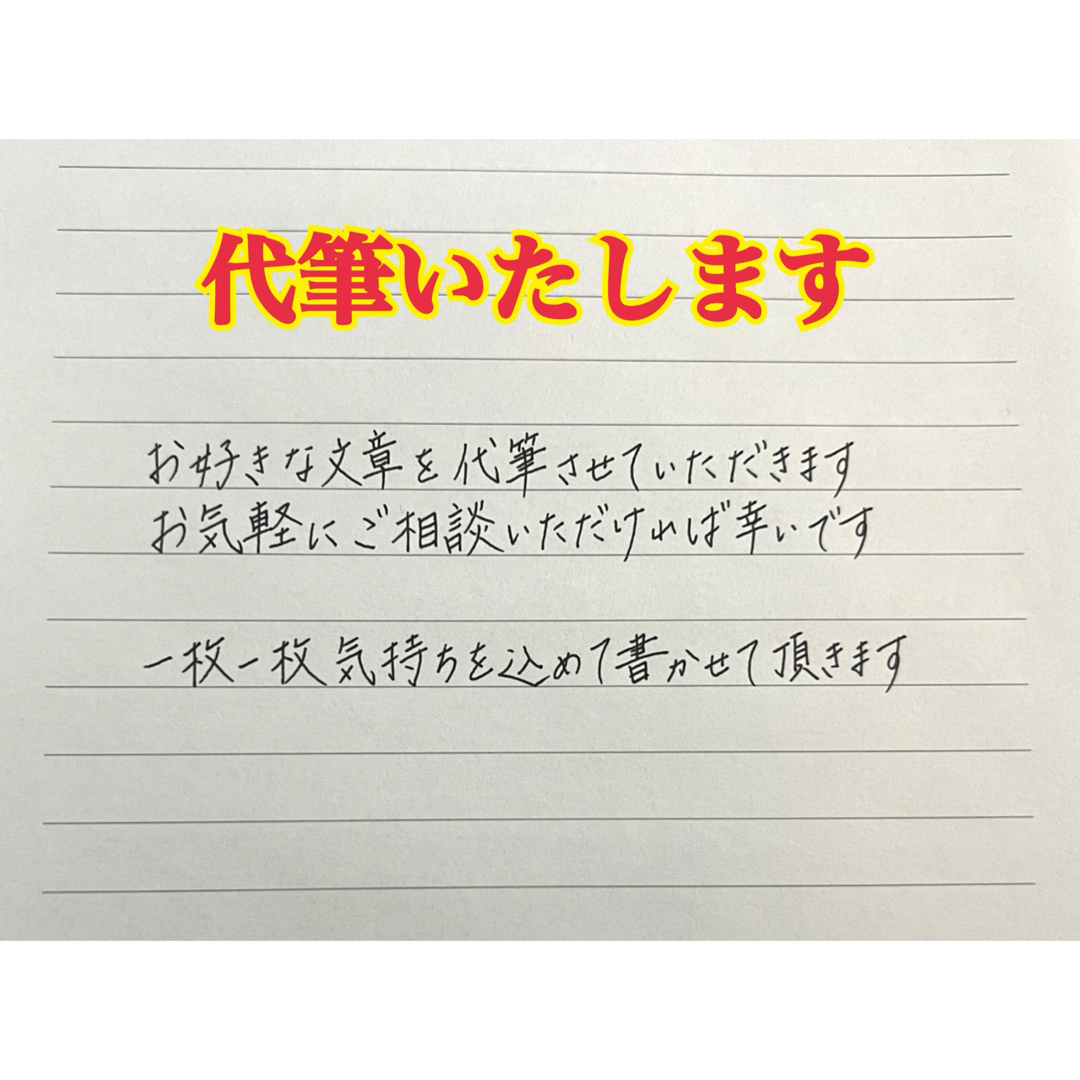 代筆いたします
お好きな文章を代筆させていただきます
お気軽にご相談いただければ幸いです
一枚一枚気持ちを込めて書かせて頂きます